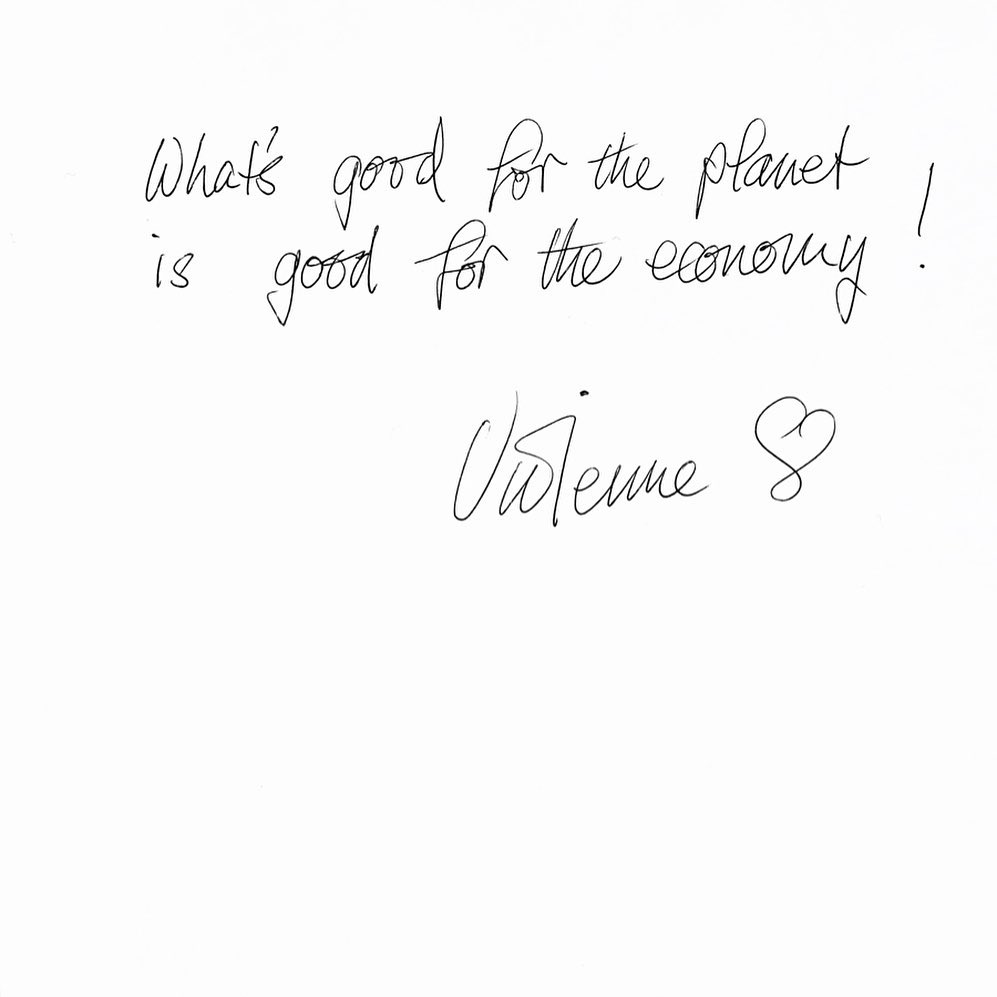 What's good for the planet
is good for the economy!
Vivienne